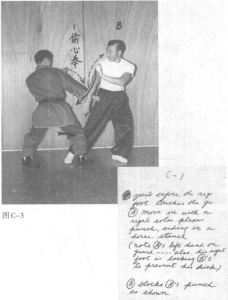 B
偷
心
拳
图C-3
C-3
just before the rig
foot touches the gr
Ⓐ move in with a
right solar plexus
punch, ending in a
horse stance
(note Ⓑ's left hand on
guard ---- also, his right
foot is locking Ⓑ's
to prevent his kick)
Ⓑ blocks Ⓐ's punch
as shown